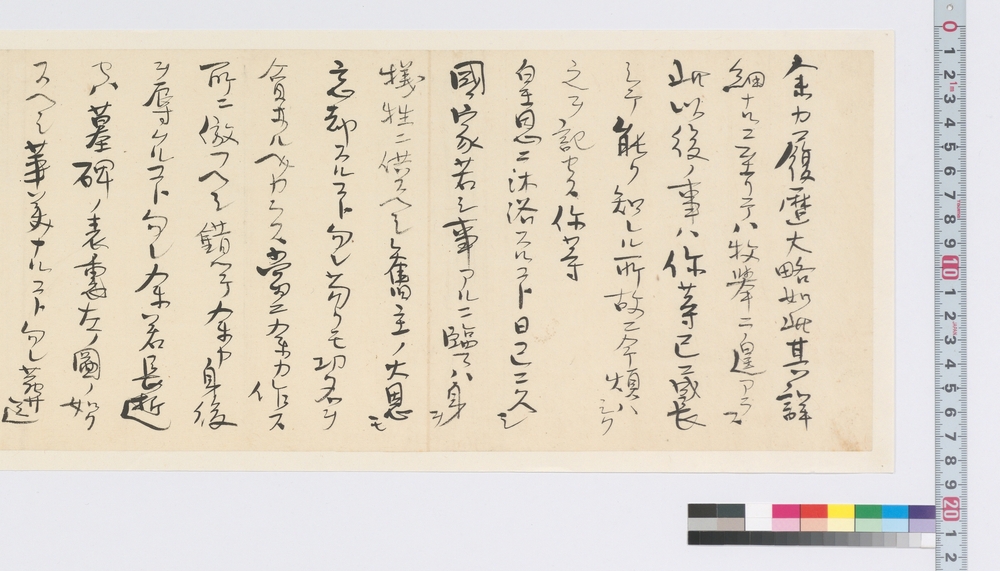 余カ履歴大略如此其詳
細ナルニ至リテハ枚挙ニ遑アラス
此以後ノ事ハ你等已ニ成長
シテ能ク知ル所故ニ今煩ハシク
之ヲ記セス你等
皇恩ニ沐浴スルコト日已ニ久シ
國家若シ事アルニ臨テハ身ヲ
犠牲ニ供スヘシ舊主ノ大恩モ
忘却スルコト勿レ苟クモ功名ヲ
貪ルヘカラス當ニ余カ作ス
所ニ倣フヘシ錯テ余カ身後
ヲ辱ムルコト勿レ余若長逝
セハ墓碑ノ表裏左ノ圖ノ如ク
スヘシ華美ナルコト勿レ葬送